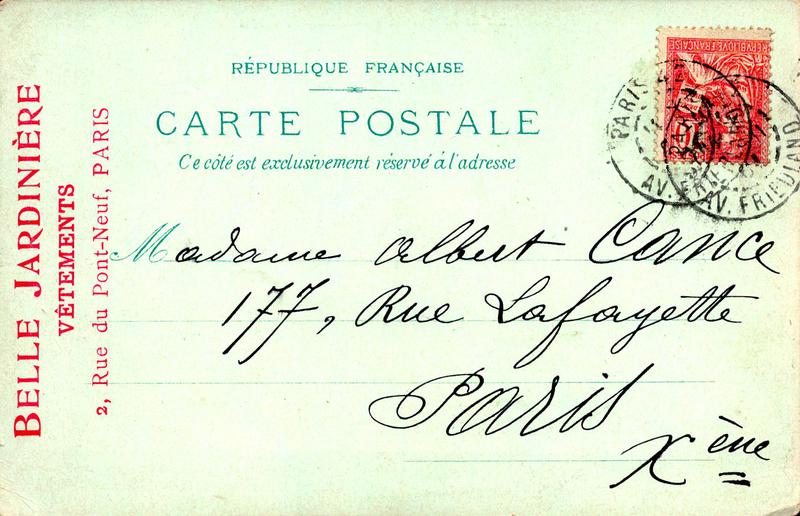 RÉPUBLIQUE FRANÇAISE
CARTE POSTALE
Ce côté est exclusivement réservé à l'adresse
BELLE JARDINIÈRE
VÊTEMENTS
2, Rue du Pont-Neuf, PARIS
REPUBLIQUE FRANÇAISE
10
PARIS
AV. FRIEDLAND
Madame Albert Cance
177, Rue Lafayette
Paris
Xème